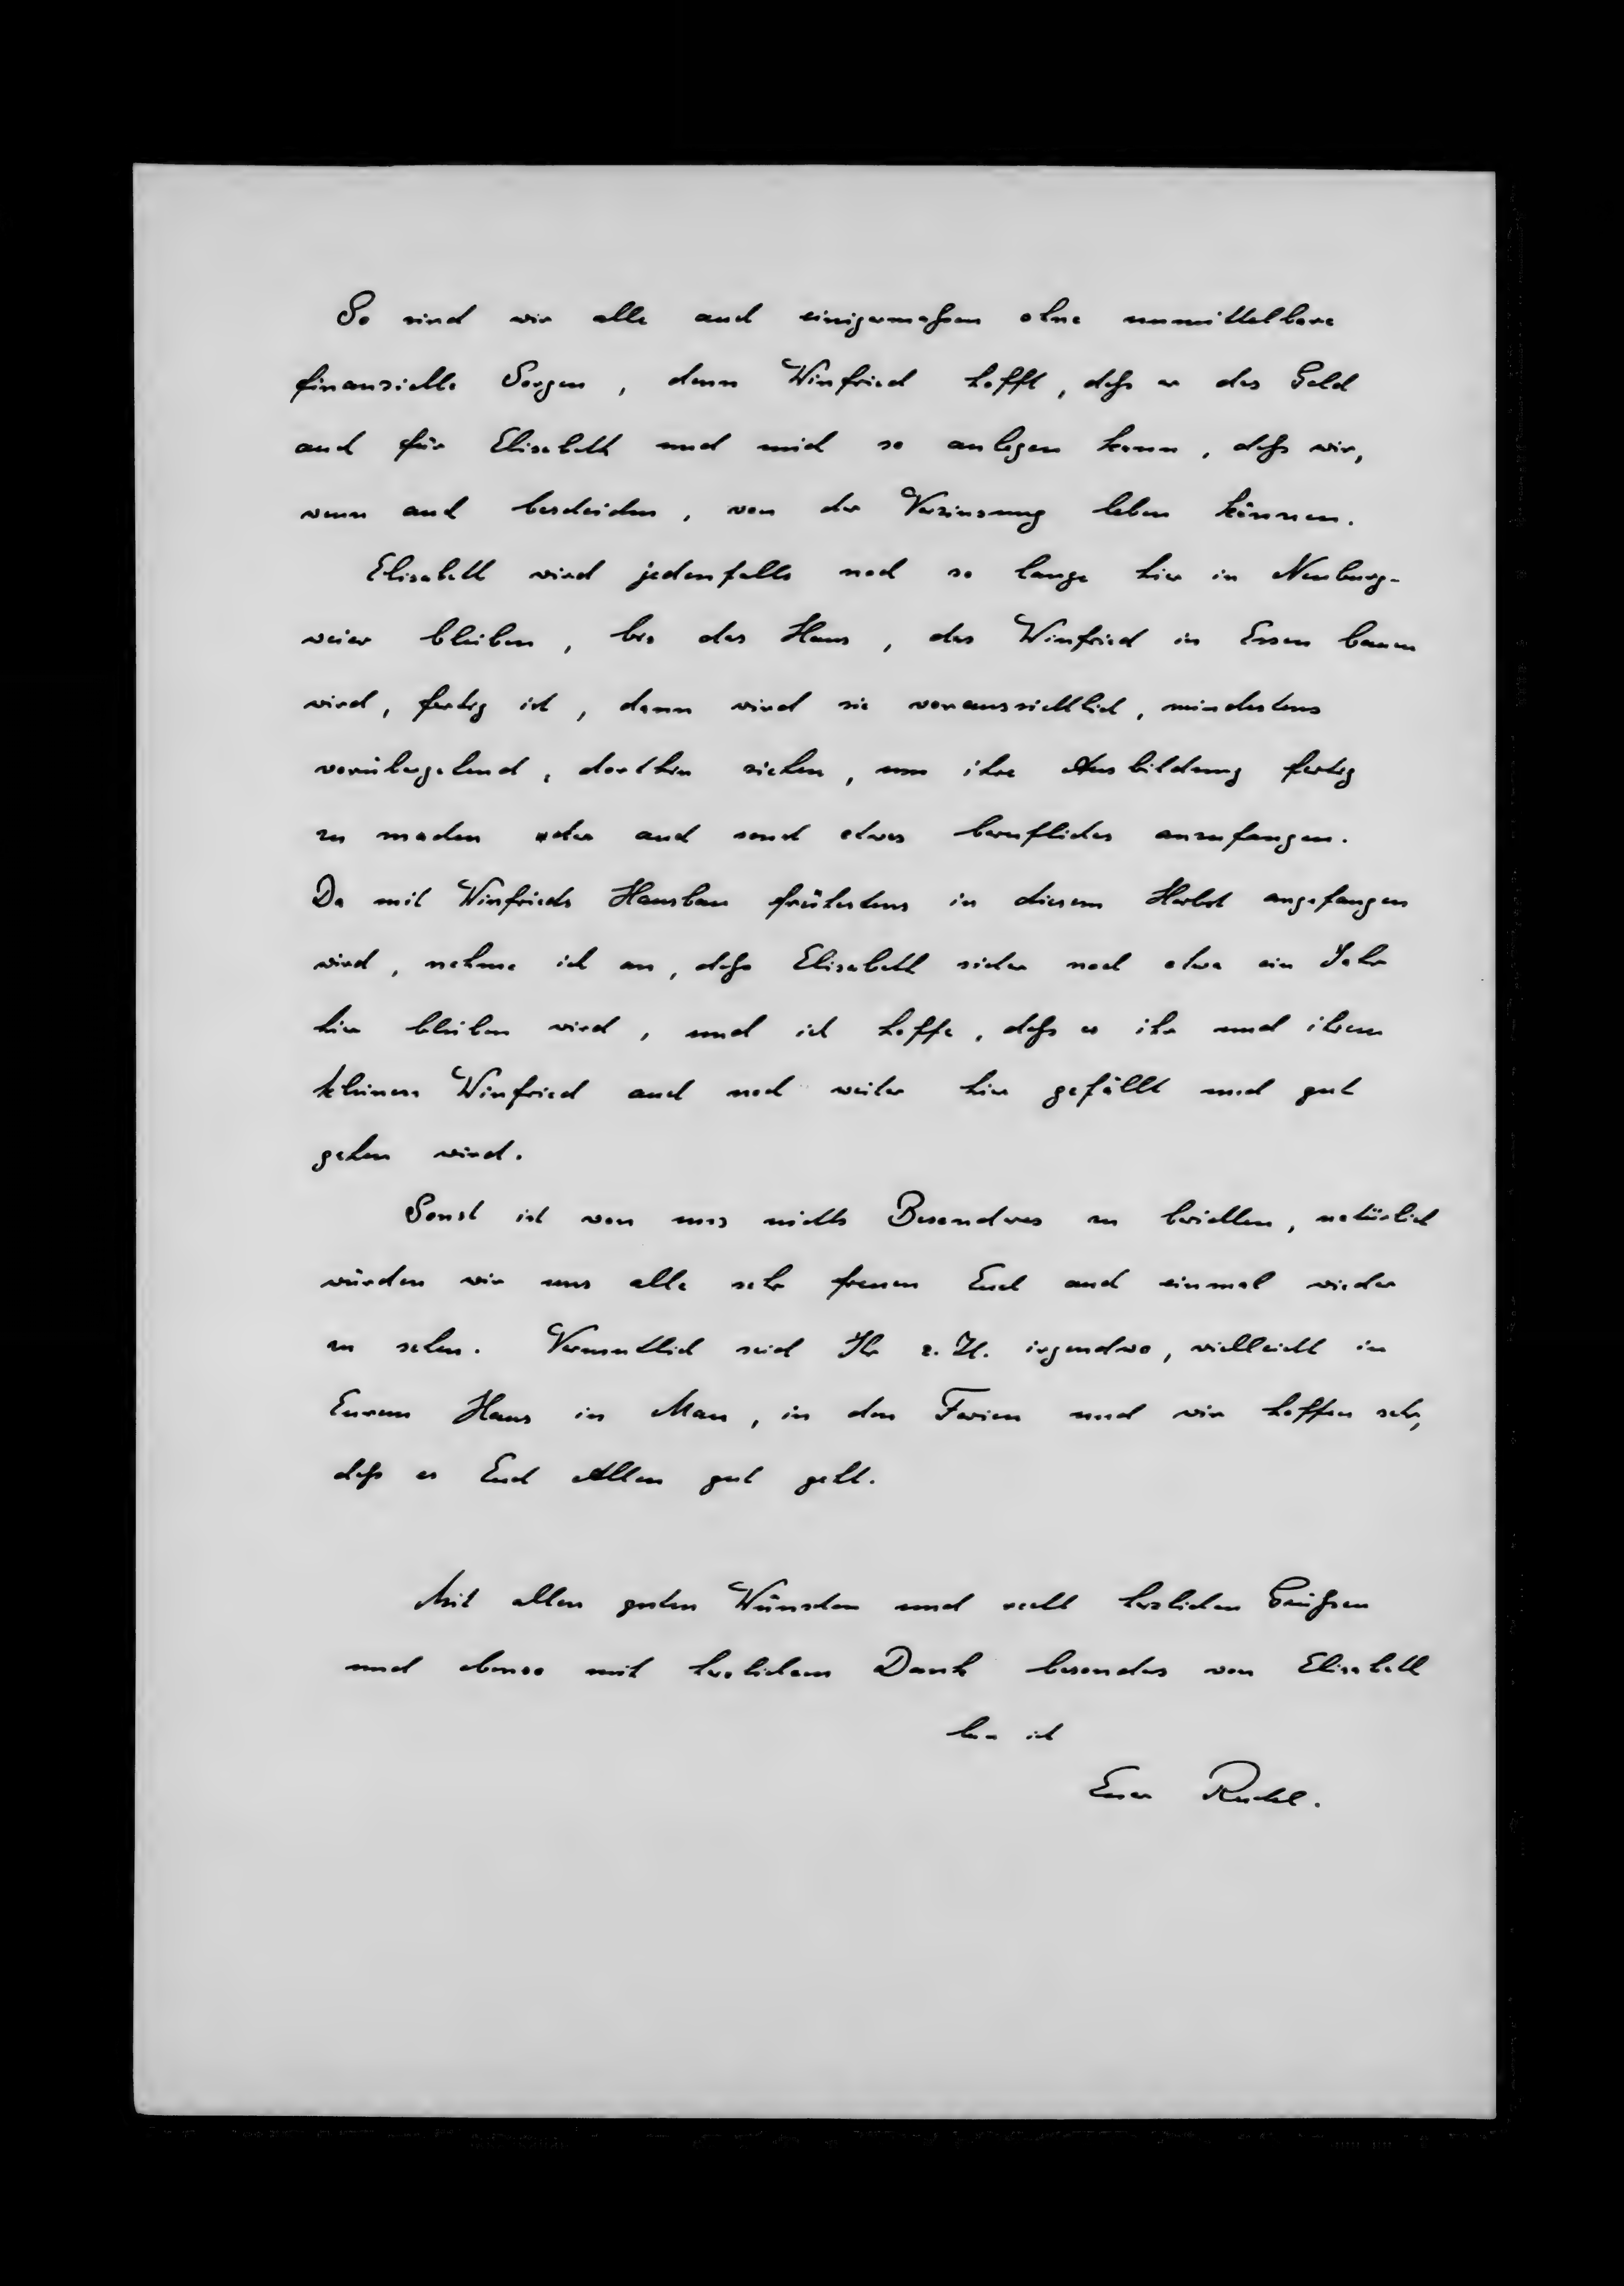 So sind wir alle auch einigermaßen ohne unmittelbare
finanzielle Sorgen, denn Winfried hofft, daß er das Geld
auch für Elisabeth und mich so anlegen kann, daß wir,
wenn auch bescheiden, von der Verzinsung leben können.
Elisabeth wird jedenfalls noch so lange hier in Neuburg-
weier bleiben, bis das Haus, das Winfried in Essen bauen
wird, fertig ist, dann wird sie voraussichtlich, mindestens
vorübergehend, dorthin ziehen, um ihre Ausbildung fertig
zu machen oder auch sonst etwas berufliches anzufangen.
Da mit Winfrieds Hausbau frühestens in diesem Herbst angefangen
wird, nehme ich an, daß Elisabeth sicher noch etwa ein Jahr
hier bleiben wird, und ich hoffe, daß es ihr und ihrem
kleinen Winfried auch noch weiter hier gefällt und gut
gehen wird.
Sonst ist von uns nichts Besonderes zu berichten, natürlich
würden wir uns alle sehr freuen Euch auch einmal wieder
zu sehen. Vermutlich seid Ihr z. Zt. irgendwo, vielleicht in
Eurem Haus in Mau, in den Ferien und wir hoffen sehr,
daß es Euch Allen gut geht.
Mit allen guten Wünschen und recht herzlichen Grüßen
und ebenso mit herzlichem Dank besonders von Elisabeth
bin ich
Euer Rudel.